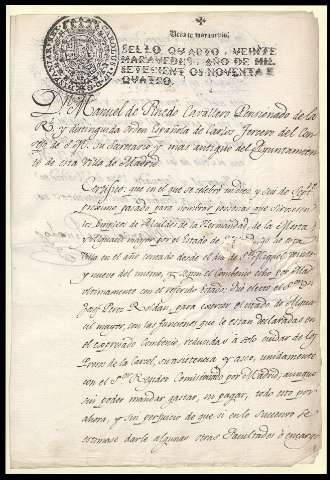 Veinte maravedis.
SELLO QUARTO, VEINTE
MARAVEDIS, AÑO DE MIL
SETECIENTOS NOVENTA E
QUATRO.
Dn. Manuel de Pinedo Cavallero Pensionado de la
Rl. y distinguida orden Española de Carlos tercero del Con
de S.M. su Secretario y mas antiguo del Ayuntamien
to de esta Villa de Madrid
Certifico: que en el que se celebró
proximo pasado para nombrar personas que sirviesen
los Empleos de Alcaldes de la Hermandad, de la Mesta
y Alguacil mayor por el Estado de esta
Villa en el año contado desde el dia de Sn. Miguel veinte
y nueve del mismo, segun el Combenio echo por Villa
ultimamente con el referido Estado: fue electo el Sor. Dn.
Josef Perez Roldan, para exercer el
cil mayor, con las funciones que le estan declaradas en
el expresado Combenio, reducidas a solo cuidar de los
Povres de la Carcel, su asistencia y aseo, unidamente
con el Sor. Regidor Comisionado por Madrid; aunque
sin poder mandar gastar, ni pagar, todo esto por
ahora, y sin perjuicio de que si en lo succesivo se
estimase darle algunas otras Facultades ó encargos